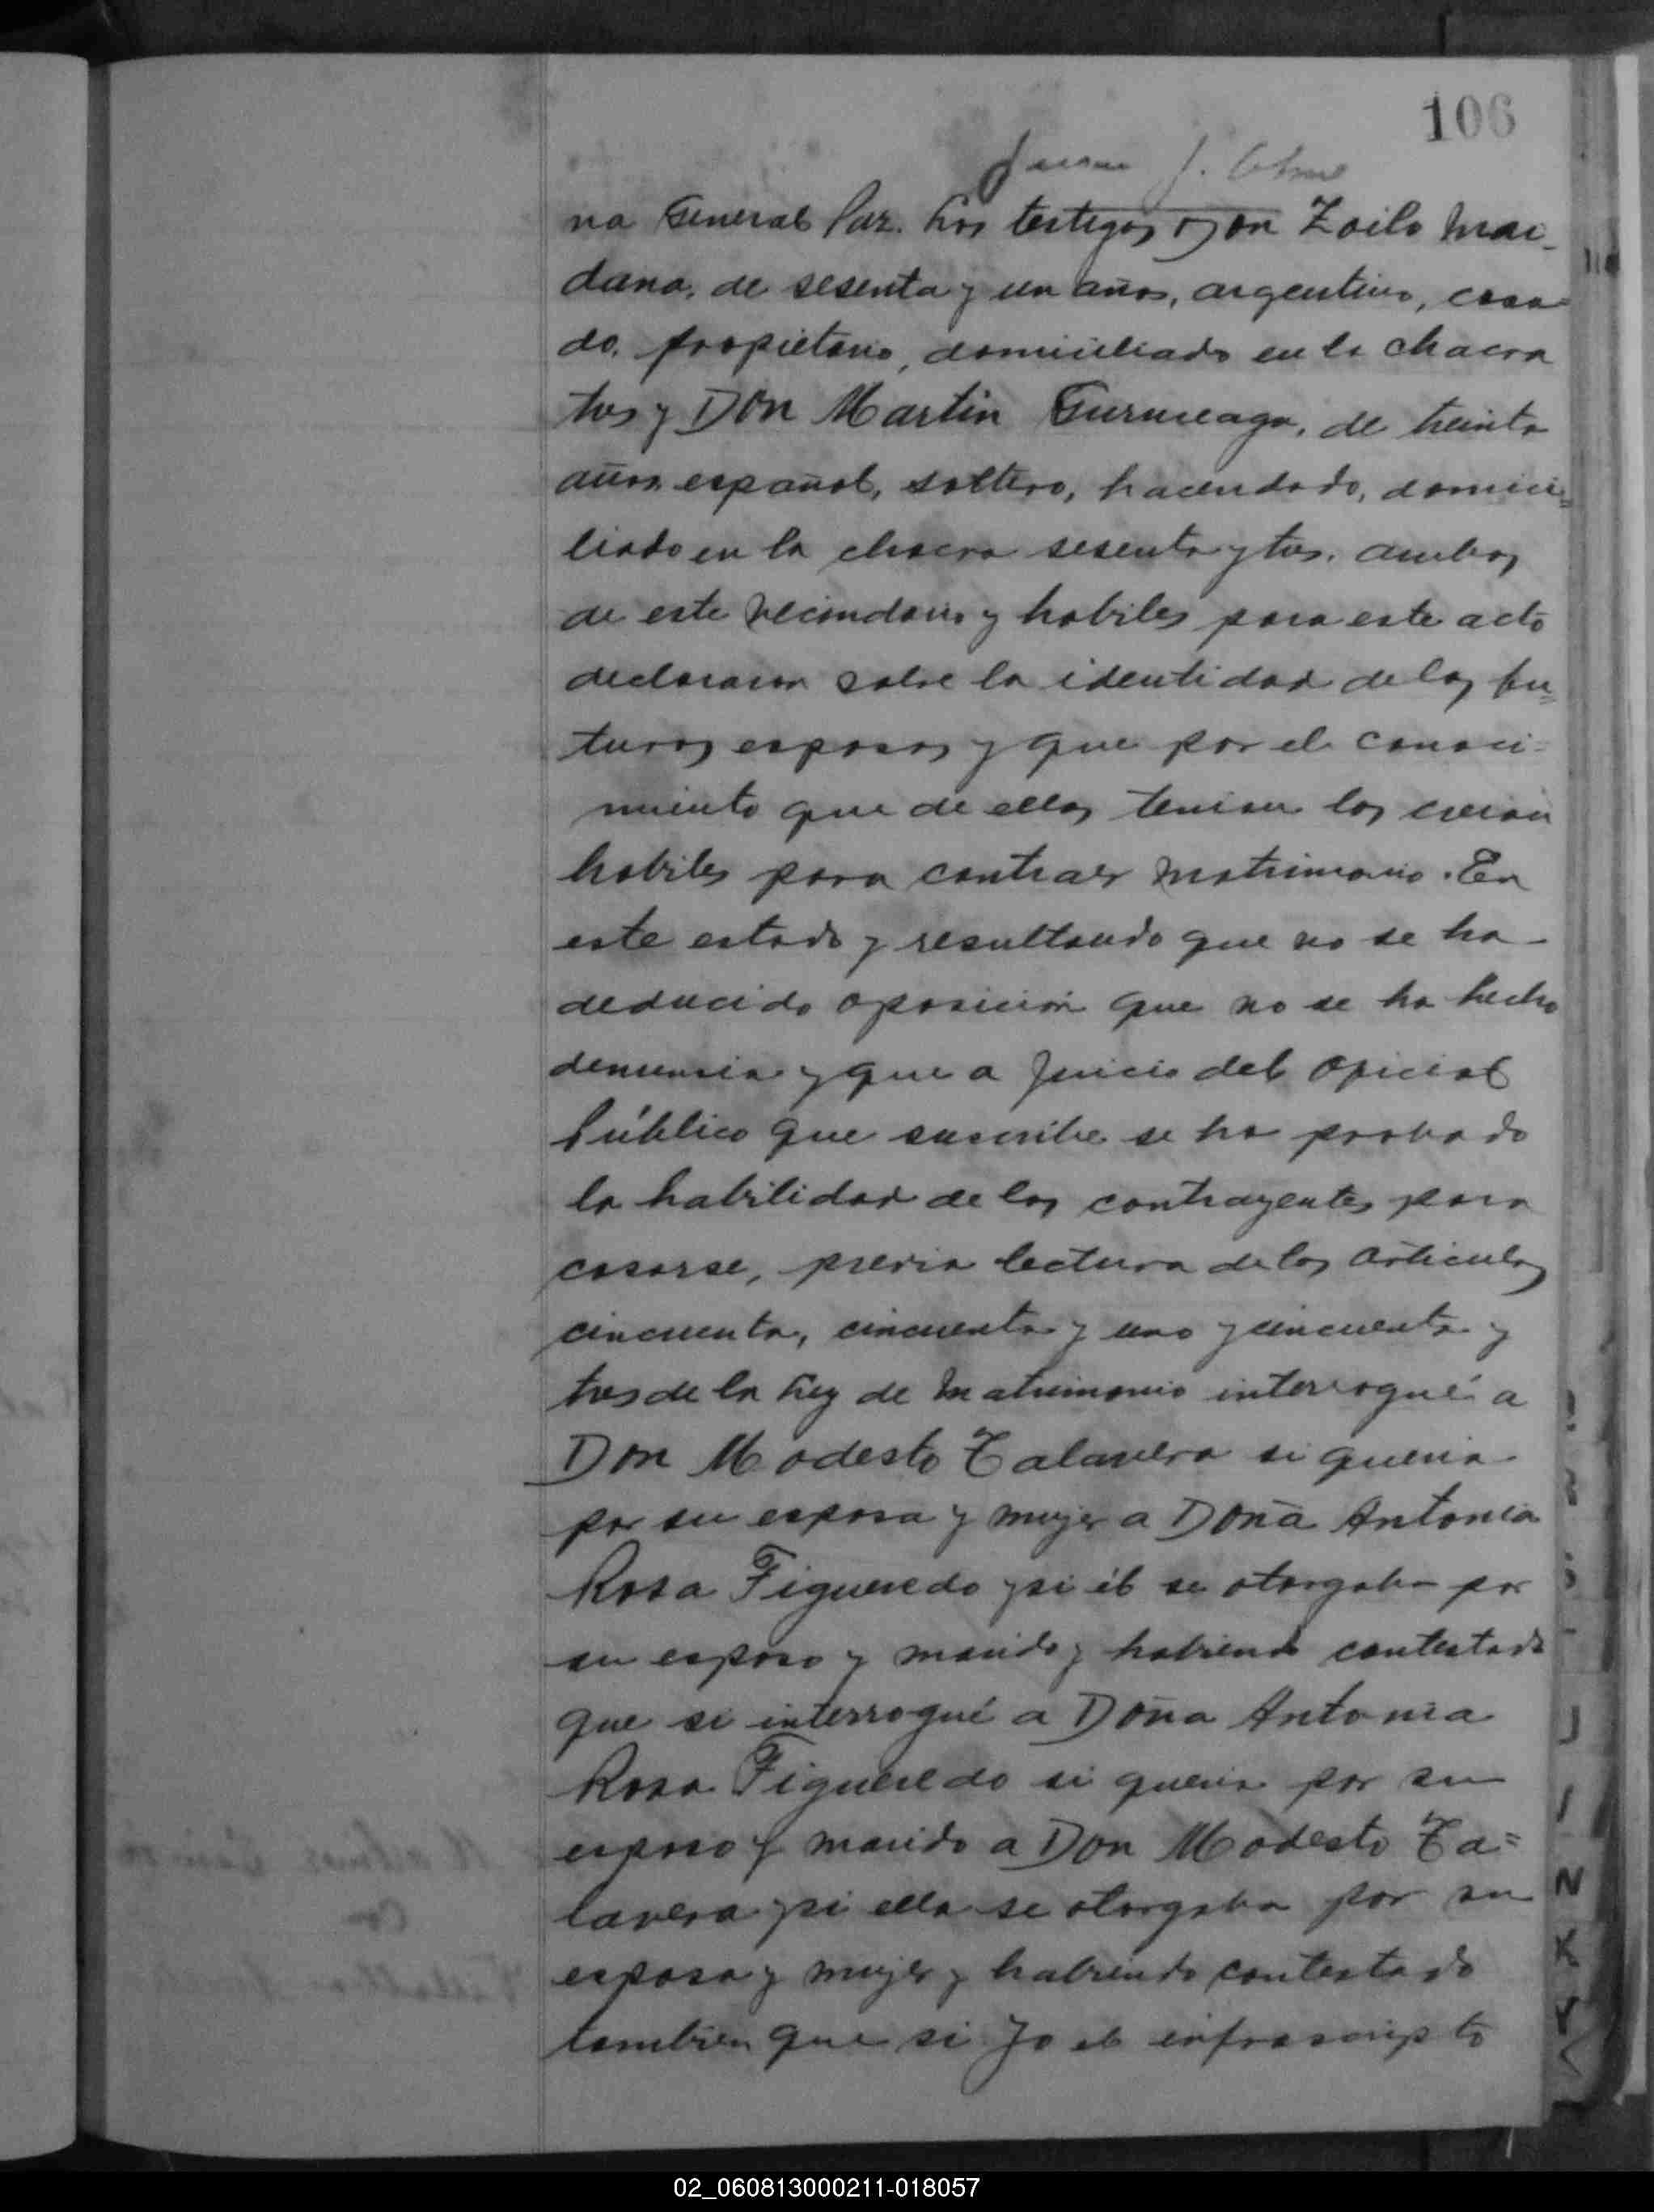 106
Juan J.
na General Paz. Los testigos Don Zoilo Mai-
dana, de sesenta y un años, argentino, casa-
do, propietario, domiciliado en la chacra
tres y Don Martin Gurruceaga, de treinta
años español, soltero, hacendado, domici=
liado en la chacra sesenta y tres. ambos
de este vecindario y habiles para este acto
declararon sobre la identidad de los fu=
turos esposos y que por el conoci=
miento que de ellos tenian los creian
habiles para contraer matrimonio. En
este estado y resultando que no se ha
deducido oposición que no se ha hecho
denuncia y que a juicio del Oficial
Público que suscribe se ha probado
la habilidad de los contrayentes para
casarse, previa lectura de los articulos
cincuenta, cincuenta y uno y cincuenta y
tres de la Ley de Matrimonio interrogué a
Don Modesto Talavera si queria
por su esposa y mujer a Doña Antonia
Rosa Figueredo y si él se otorgaba por
su esposo y marido y habiendo contestado
que si interrogué a Doña Antonia
Rosa Figueredo si queria por su
esposo y marido a Don Modesto Ta=
lavera y si ella se otorgaba por su
esposa y mujer y habiendo contestado
tambien que si yo el infrascripto
J
I
N
K
Y
02_060813000211-018057